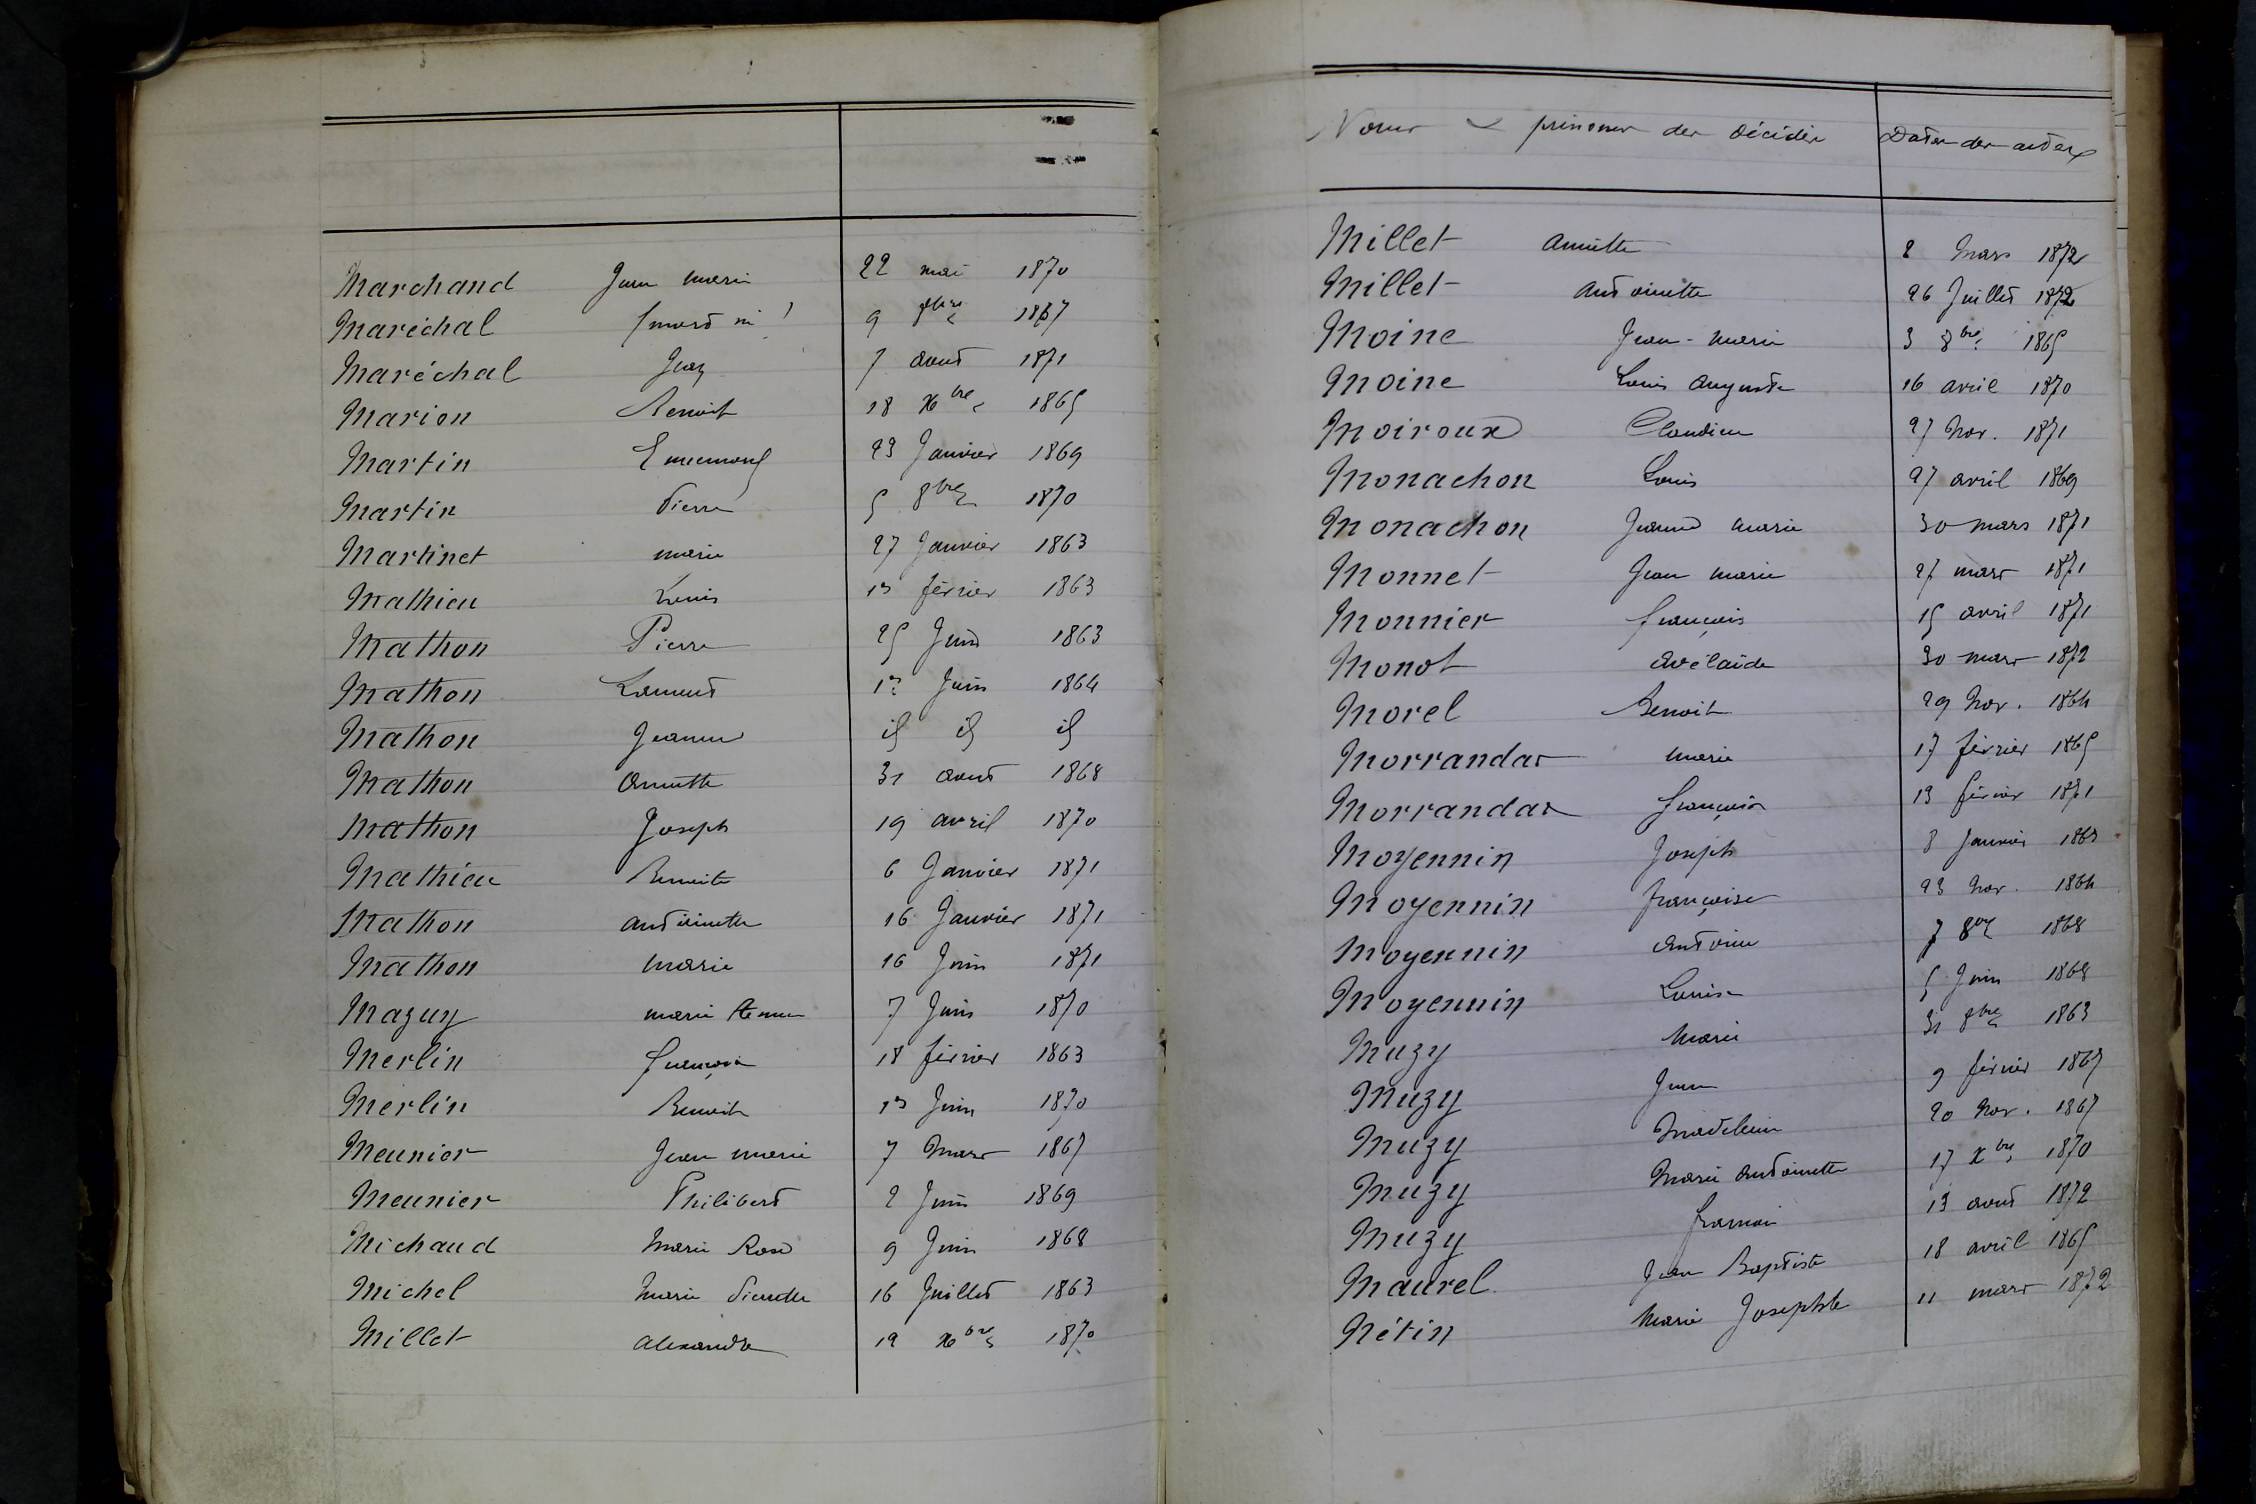 Marchand Jean Marie 22 mai 1870
Maréchal (mort né) 9 8bre 1867
Maréchal Jean 7 aout 1871
Marion Benoit 18 Xbre 1865
Martin Ennemond 23 Janvier 1869
Martin Pierre 5 8bre 1870
Martinet marie 27 Janvier 1863
Mathieu Louis 13 février 1863
Mathon Pierre 25 Juin 1863
Mathon Laurent Juin 1864
Mathon Jeanne id id id
Mathon Annette 31 aout 1868
Mathon Joseph 19 avril 1870
Mathieu Benoite 6 Janvier 1871
Mathon antoinette 16 Janvier 1871
Mathon Marie 16 Juin 1871
Mazuy marie 7 Juin 1870
Merlin François 18 février 1863
Merlin Benoit 13 Juin 1870
Meunier Jean marie 7 Mars 1867
Meunier Philibert 2 Juin 1869
Michaud Marie Rose 9 Juin 1868
Michel Marie Pierrette 16 Juillet 1863
Millet alexandre 19 Xbre 1870
Noms & prénoms des décédés Dates des actes
Millet annette 8 Mars 1872
Millet antoinette 26 Juillet 1872
Moine Jean-Marie 3 8bre 1865
Moine Louis auguste 16 avril 1870
Moiroux Claudine 27 Nov. 1871
Monachon Louis 27 avril 1869
Monachon Jeanne Marie 30 mars 1871
Monnet Jean marie 27 mars 1871
Monnier françois 15 avril 1871
Monot adélaïde 30 mars 1872
Morel Benoit 29 Nov. 1864
Morrandas Marie 17 février 1865
Morrandas françois 13 février 1871
Moyennin Joseph 8 Janvier 1863
Moyennin françoise 23 Nov. 1864
Moyennin antoine 7 8bre 1868
Moyennin Louise 5 Juin 1868
Muzy Marie 31 8bre 1863
Muzy Jean 9 février 1867
Muzy Madeleine 20 Nov. 1867
Muzy Marie antoinette 17 Xbre 1870
Muzy françois 13 aout 1872
Maurel Jean Baptiste 18 avril 1865
Nétin Marie Josephte 11 mars 1872